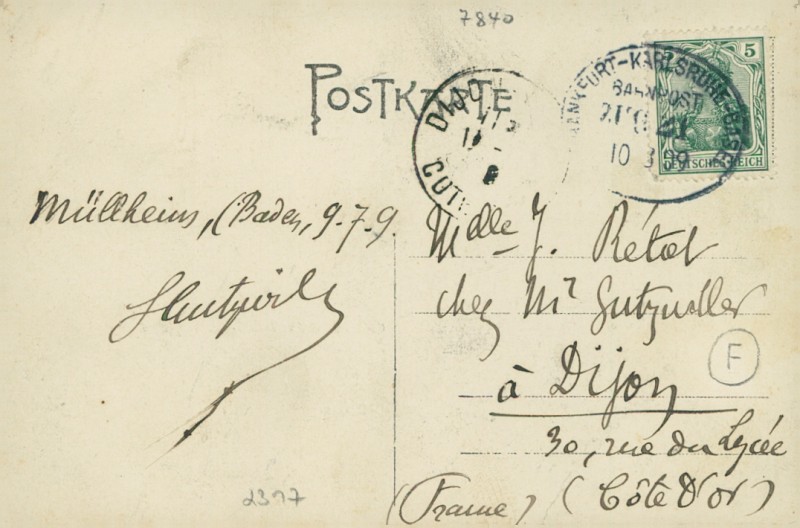 7840
POSTKARTE
DIJON
COTE
FRANKFURT-KARLSRUHE-BASEL
BAHNPOST
ZUG 21
10
5
DEUTSCHES REICH
Müllheim, (Baden, 9-7-9.
Mdlle J. Rétat
chez Mr Gutzwiller
F
à Dijon
30, rue du Lycée
(France) (Côte d'Or)
2377